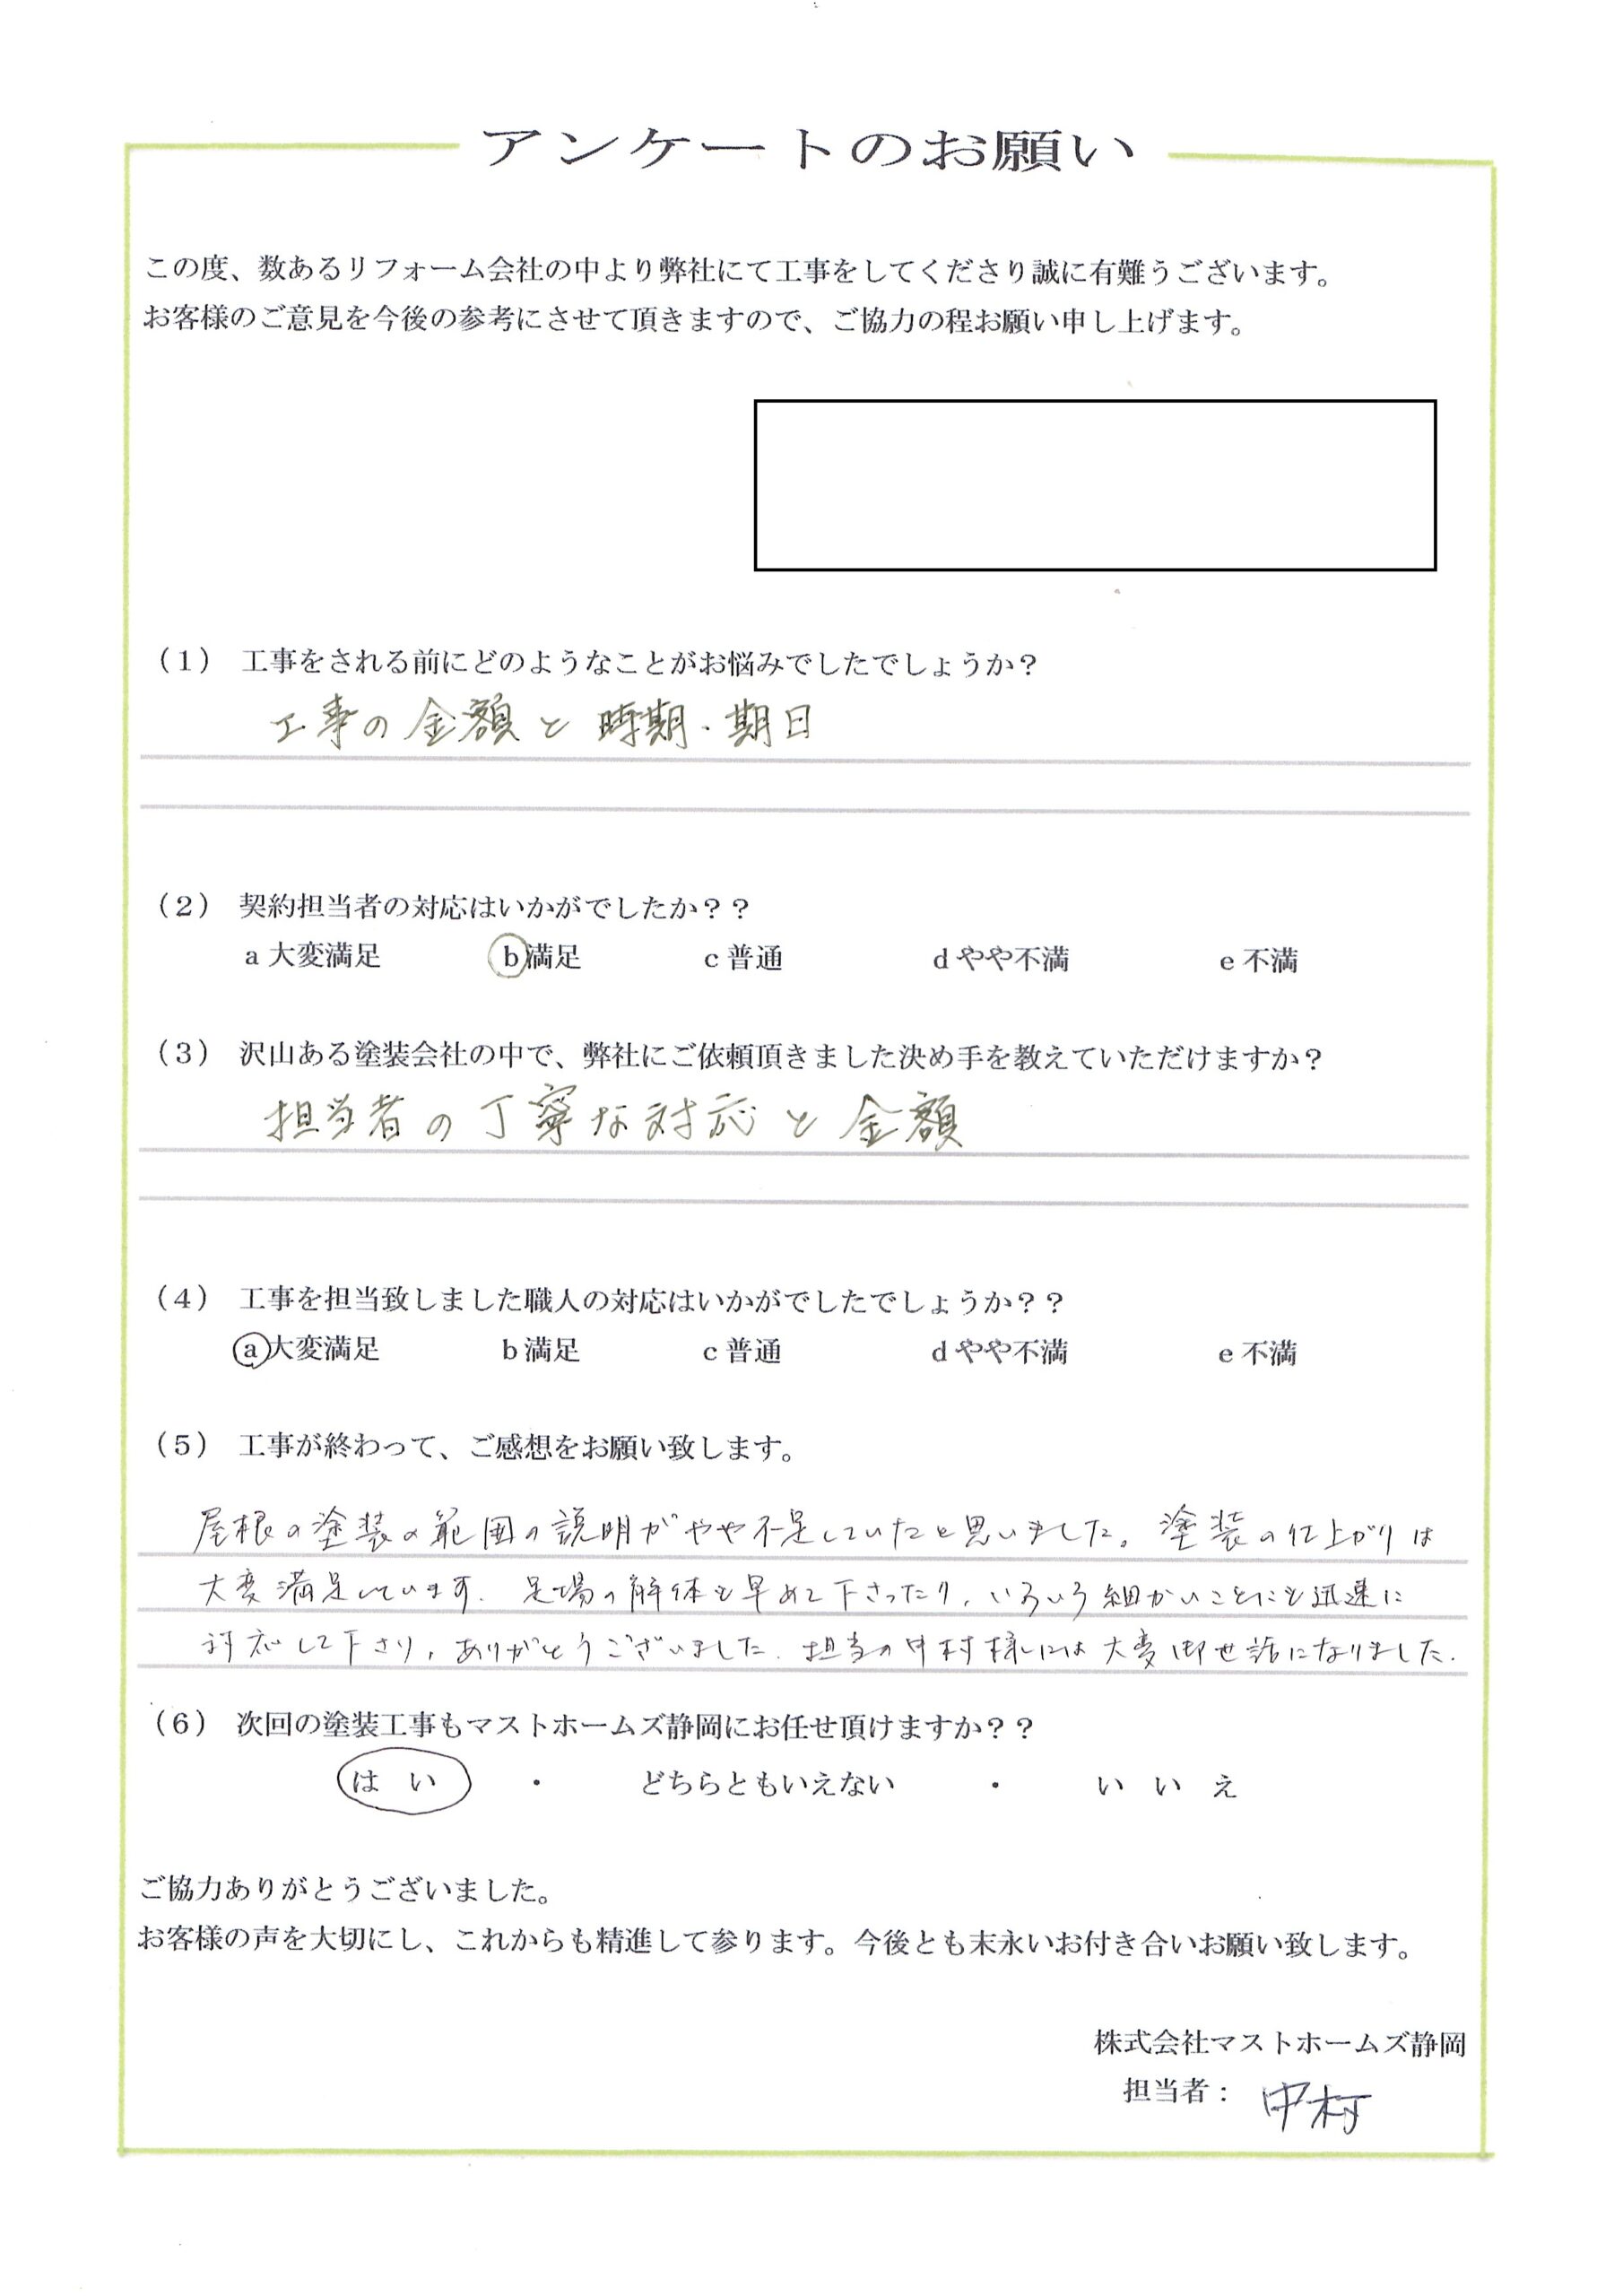 アンケートのお願い
この度、数あるリフォーム会社の中より弊社にて工事をしてくださり誠に有難うございます。
お客様のご意見を今後の参考にさせて頂きますので、ご協力の程お願い申し上げます。
（1） 工事をされる前にどのようなことがお悩みでしたでしょうか？
工事の金額と時期・期日
（2） 契約担当者の対応はいかがでしたか？？
a 大変満足 b 満足 c 普通 d やや不満 e 不満
（3） 沢山ある塗装会社の中で、弊社にご依頼頂きました決め手を教えていただけますか？
担当者の丁寧な対応と金額
（4） 工事を担当致しました職人の対応はいかがでしたでしょうか？？
a 大変満足 b 満足 c 普通 d やや不満 e 不満
（5） 工事が終わって、ご感想をお願い致します。
屋根の塗装の範囲の説明がやや不足していたと思いました。塗装の仕上がりは
大変満足しています。足場の解体も早めて下さったり、いろいろ細かいことにも迅速に
対応して下さり、ありがとうございました。担当の中村様には大変御世話になりました。
（6） 次回の塗装工事もマストホームズ静岡にお任せ頂けますか？？
は い ・ どちらともいえない ・ い い え
ご協力ありがとうございました。
お客様の声を大切にし、これからも精進して参ります。今後とも末永いお付き合いお願い致します。
株式会社マストホームズ静岡
担当者： 中村